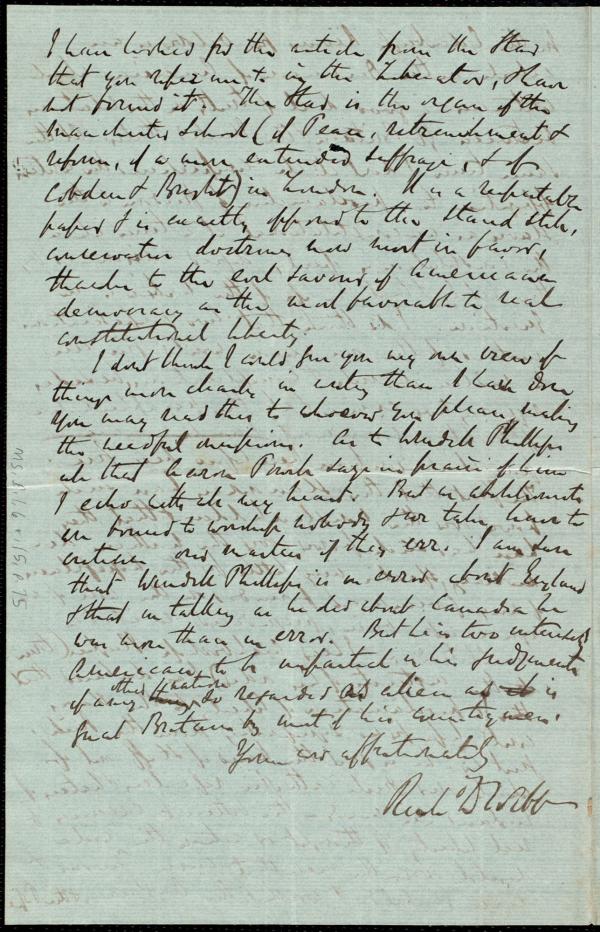 I have looked for the article from the Star
that you refer me to in the Liberator, & have
not found it. The Star is the organ of the
Manchester School (of Peace, retrenchment &
reform, of a more extended suffrage, & of
Cobden & Bright) in London. It is a respectable
paper & is exactly opposed to the stand still,
conservative doctrines now most in favor,
thanks to the evil savour of American
democracy in the most favorable to real
constitutional liberty
I don't think I could give you my own view of
things more clearly in writing than I have done
You may read this to whoever you please, making
the needful omissions. As to Wendell Phillips
all that Aaron Powell says in praise of him
I echo with all my heart. But we abolitionists
are bound to worship nobody & we take leave to
criticise our masters if they err. I am sure
that Wendell Phillips is in error about England
& that in talking as he did about Canada he
was more than in error. But he is two intensely
American to be impartial in his judgments
of any other nation so regarded as alien as is
Great Britain by most of his countrymen.
Yours affectionately
Richd D Webb
MS. A.1.6